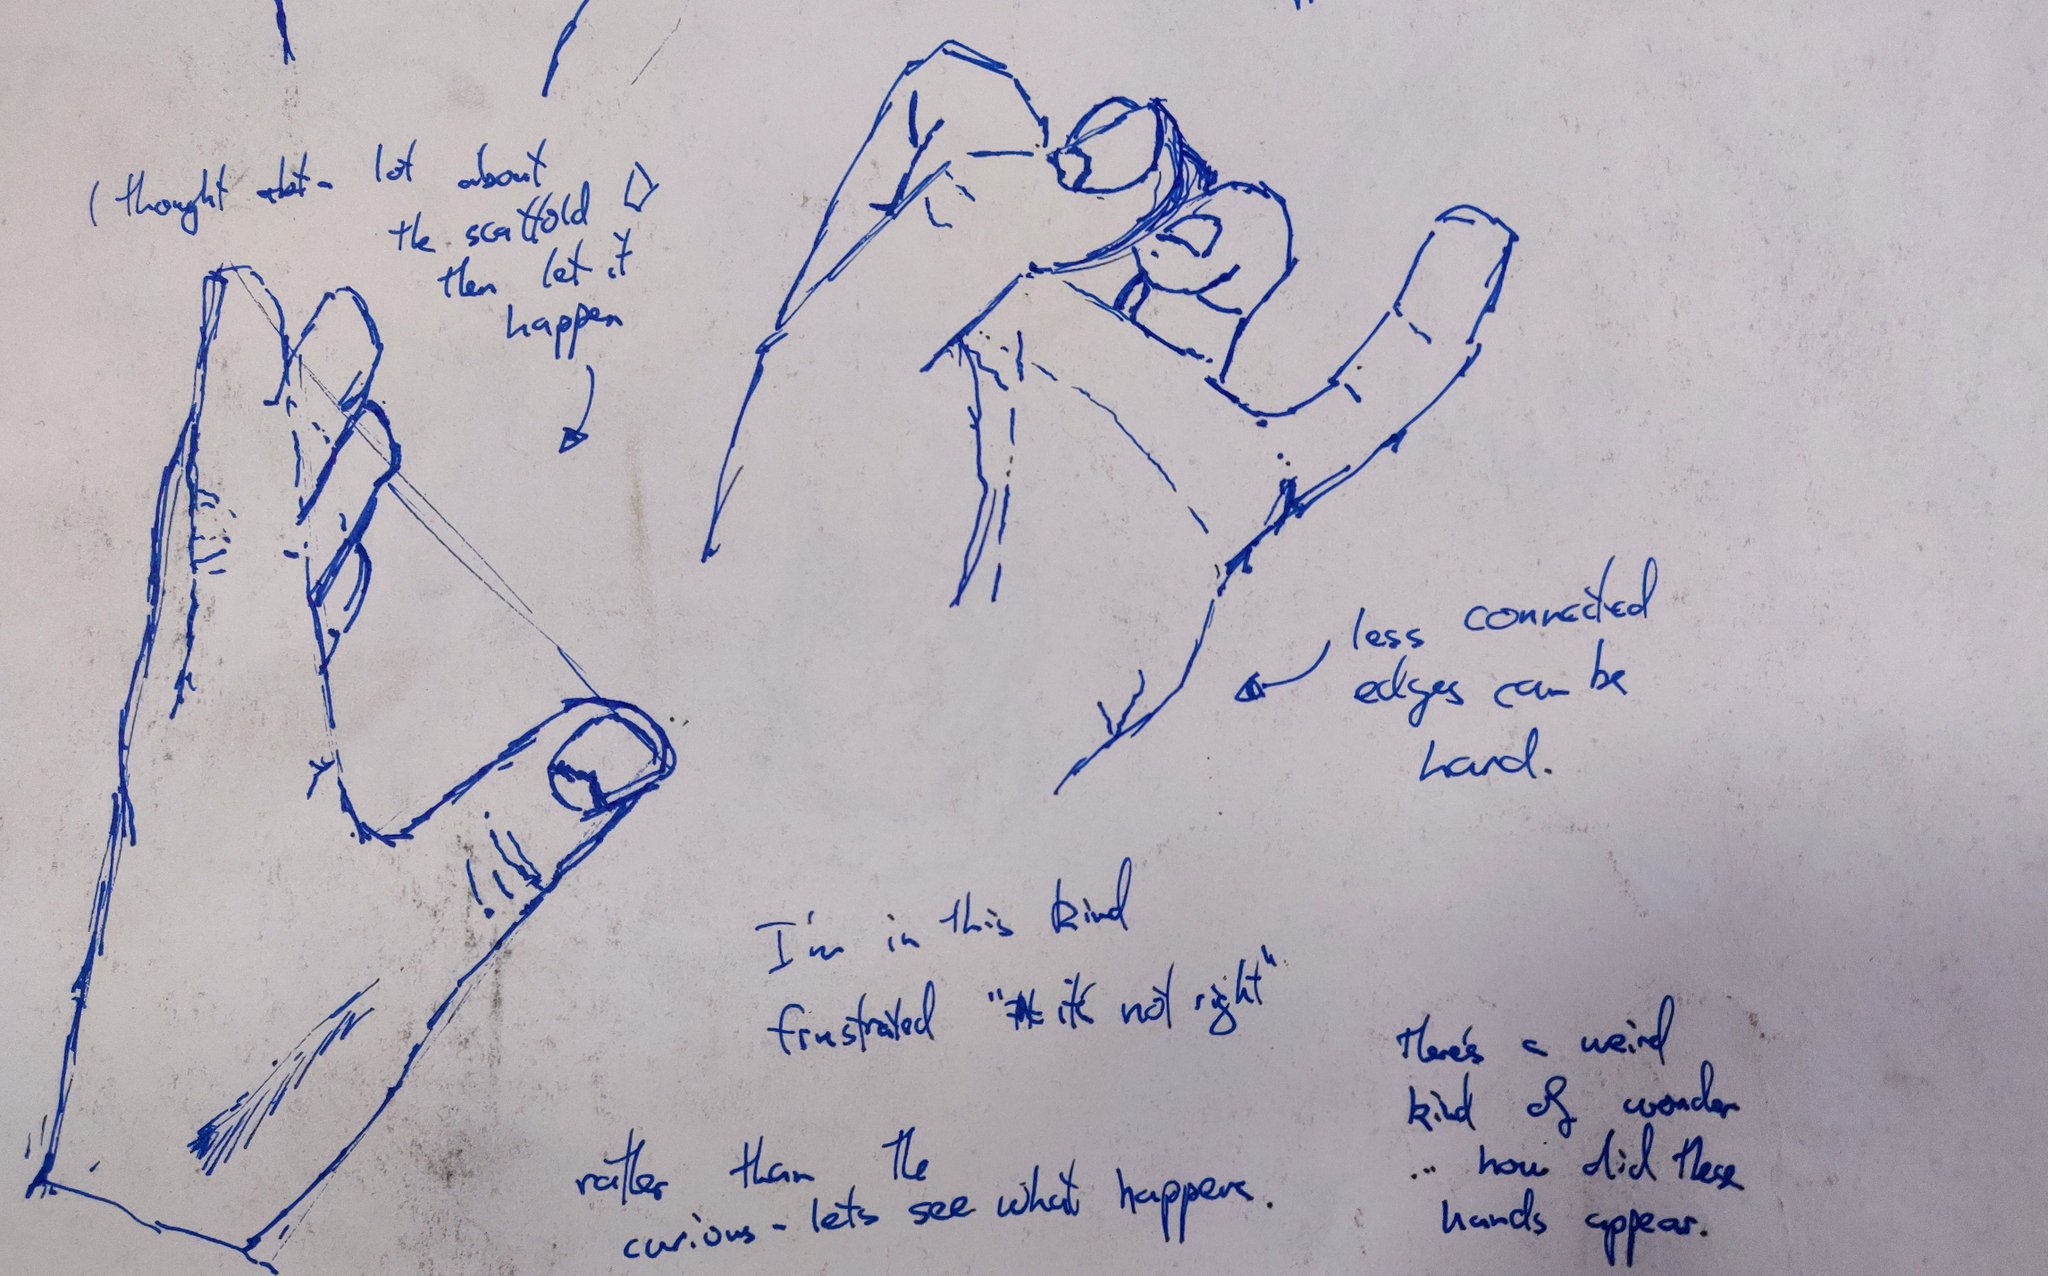 I thought a lot about
the scaffold
then let it
happen
less connected
edges can be
hard.
I'm in this kind
frustrated "it's not right"
rather than the
curious - lets see what happens.
there's a weird
kind of wonder
... how did these
hands appear.